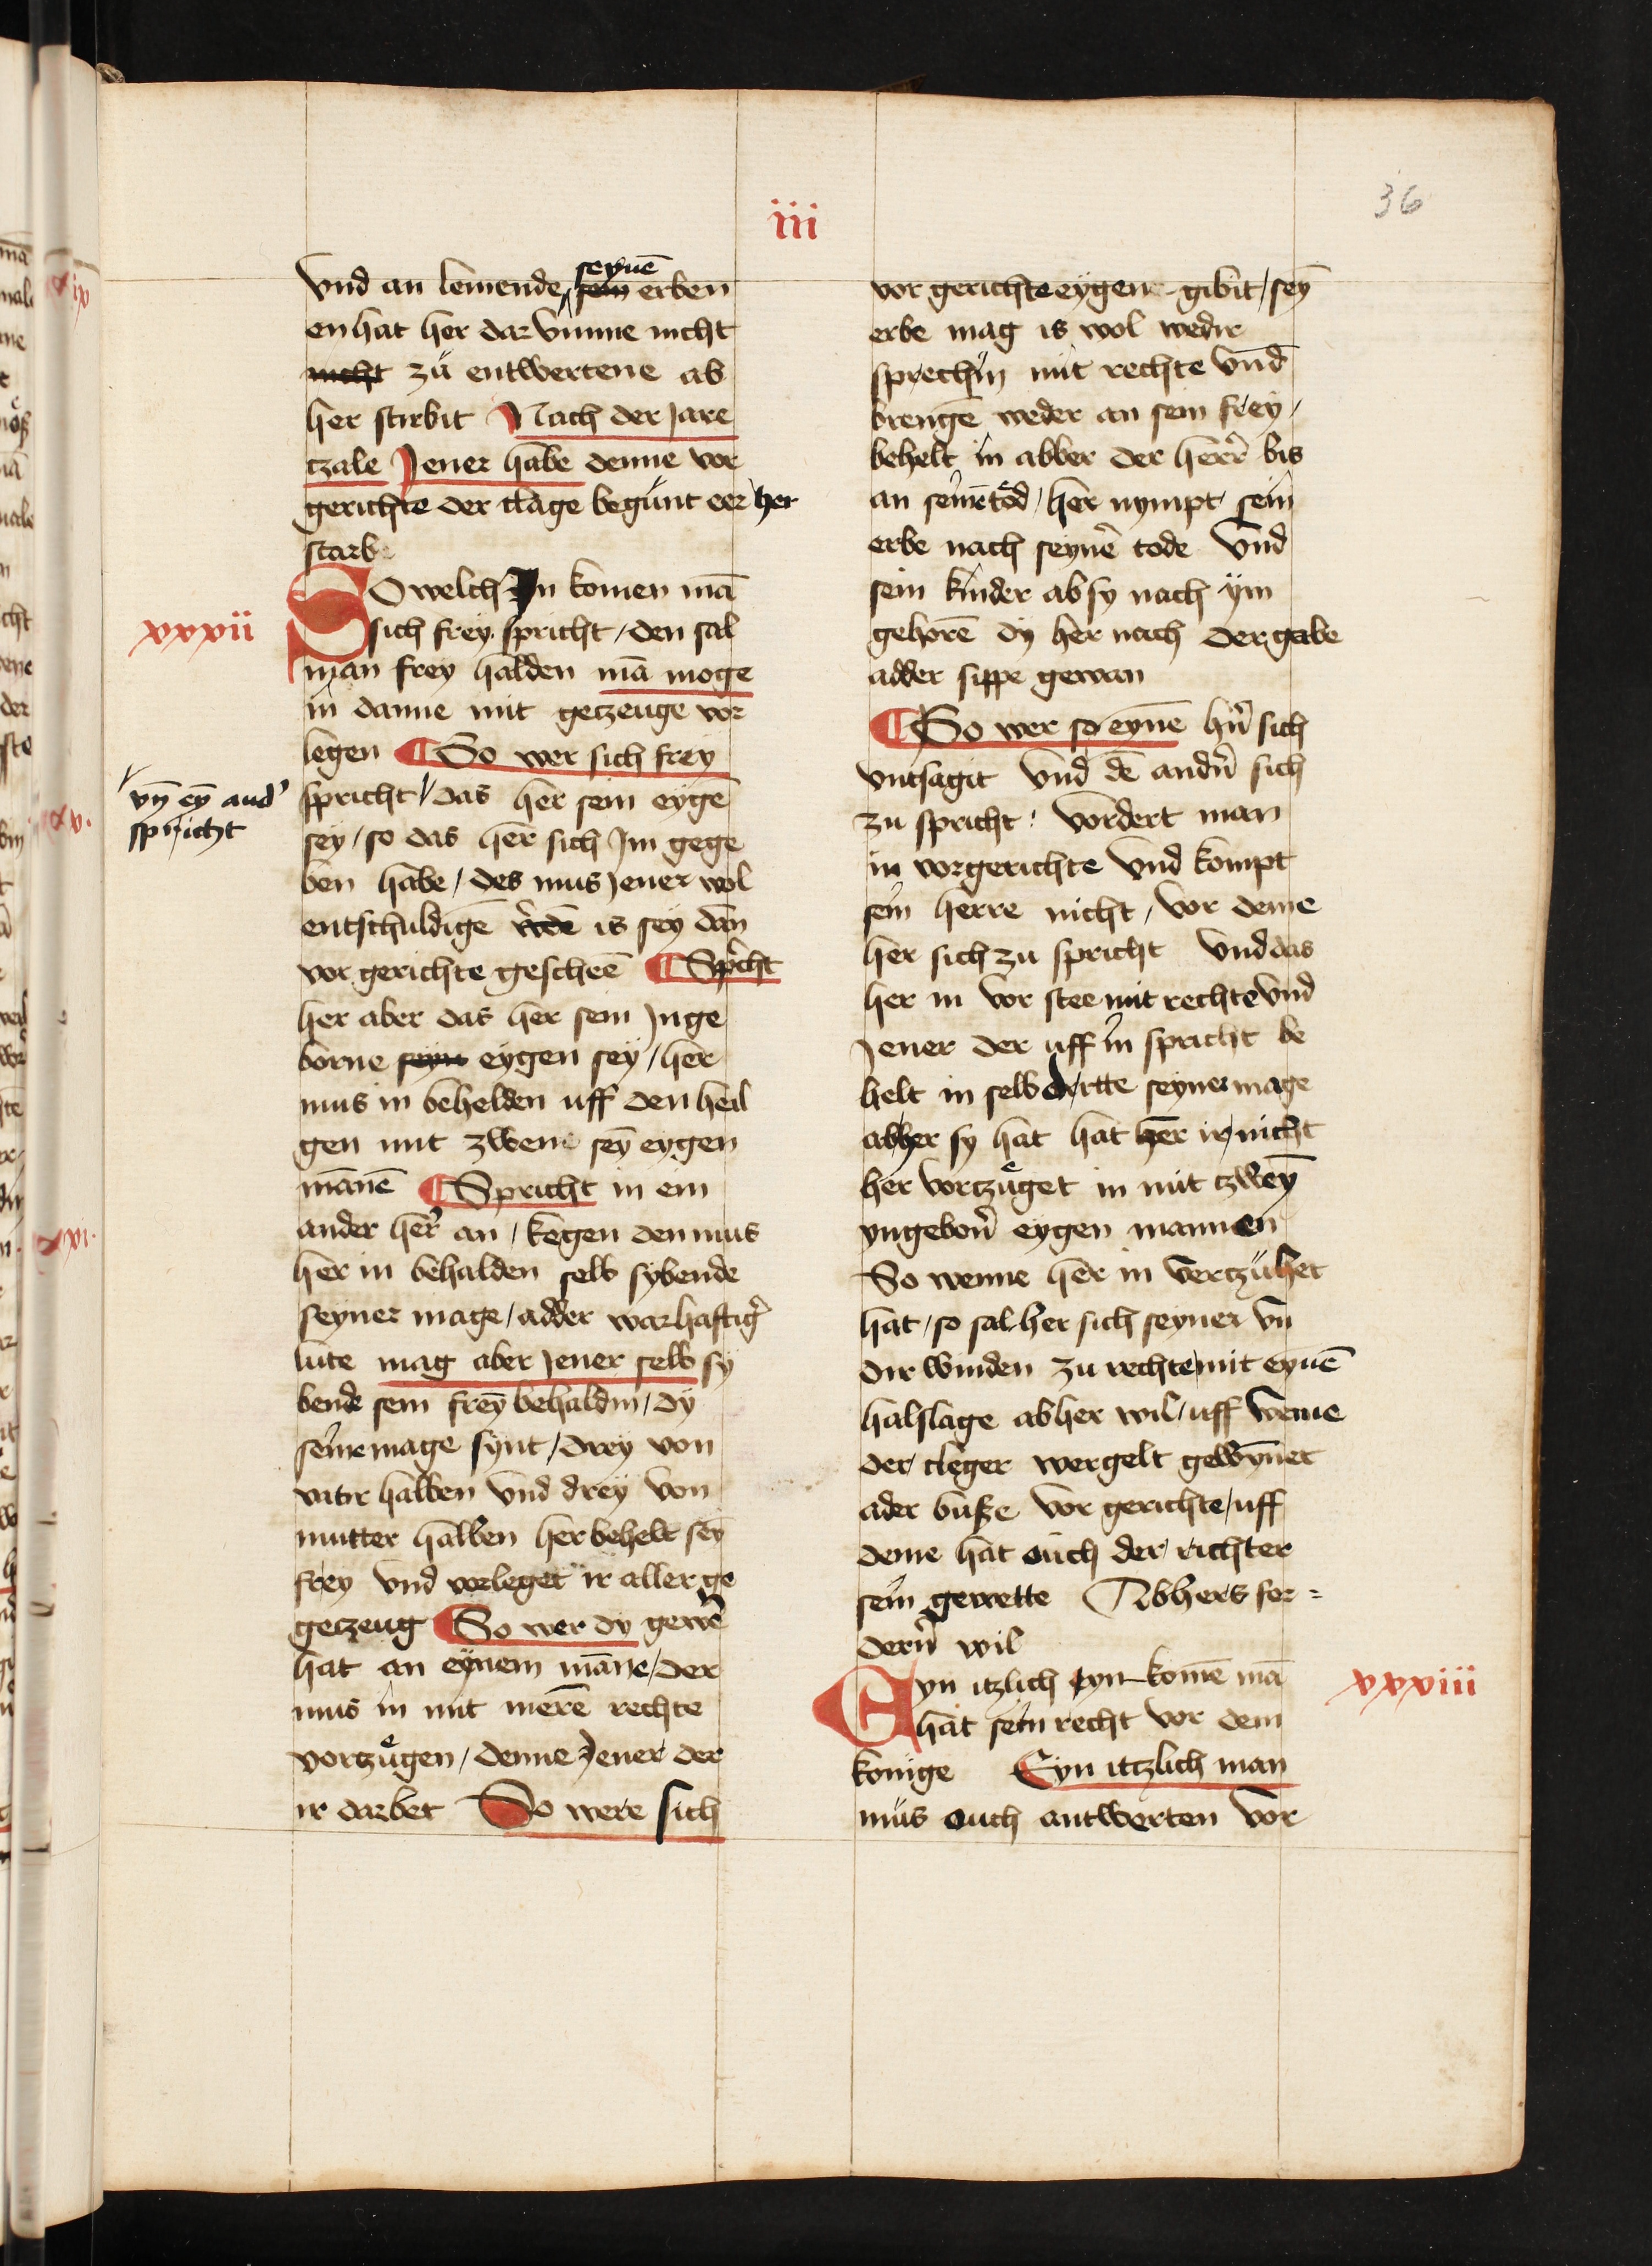 36
iii
vnd an lemende seynē sein erben
en hat her dar vmme nicht
nicht zü entwertene ab
her stirbit Nach der Jare
tzale Jener habe denne vor
gerichte der clage begunt eer her
starb
xxxii
So welch In komen mā
sich frey spricht / den sal
man frey halden mā moge
in danne mit getzeuge vor
legen ¶ So wer sich frey
vn̄ eȳ and'
spricht
spricht / das her sein eygē
sey / so das her sich Jm gege
ben habe / des mus Jener wol
entschuldigē is sey dan
vor gerichte gescheē ¶ Spricht
her aber das her sein Jnge
borne seyn eygen sey / her
mus in behelden uff den heil
gen mit zwene seȳ eygen
mānē ¶ Spricht in ein
ander her' an / kegen den mus
her in behalden selb sybende
seyner mage / adder warhaftig'
lute mag aber Jener selb sy
bende sein freȳ behaldin / dy
seine mage synt / drey von
vatir halben vnd drey von
mutter halben her behelt seȳ
frey vnd vorleget ir aller ge
getzeug ¶ So wer dy gewē
hat an eynem māne / der
mus in mit merē rechte
vortzůgen / denne Jener der
ir darbet So were sich
vor gerichte eygene gibit / seȳ
erbe mag is wol wedir
sprechin mit rechte vnd
brengē weder an sein frey /
behelt in abber der herr' bis
an seinē tod / her nympt sein
erbe nach seynē tode vnd
sein kinder ab sy nach ym
gehorē dy her nach der gabe
adder sippe gewan
¶ So wer so eynē hr̄n sich
vntsagit vnd dē andn̄ sich
zu spricht / vordert man
in vor gerichte vnd kompt
sein herre nicht / vor deme
her sich zu spricht vnd das
her in vor stee mit rechte vnd
Jener der uff in spricht be
helt in selb dirtte seyner mage
ab her sy hat hat her ir nicht
her vortzůget in mit tzweȳ
yngeborn̄ eygen mannen
So wenne her in vertzühet
hat / so sal her sich seyner vn
dir winden zu rechte mit eynē
halslage ab her wil / uff weme
der cleger wergelt gewȳnet
ader busze vor gerichte / uff
deme hat ouch der richter
sein gewette Ab hers for=
dern̄ wil
xxxiii
Eyn itzlich eyn komē mā
hat sein recht vor dem
konige Eyn itzlich man
müs ouch antworten vor